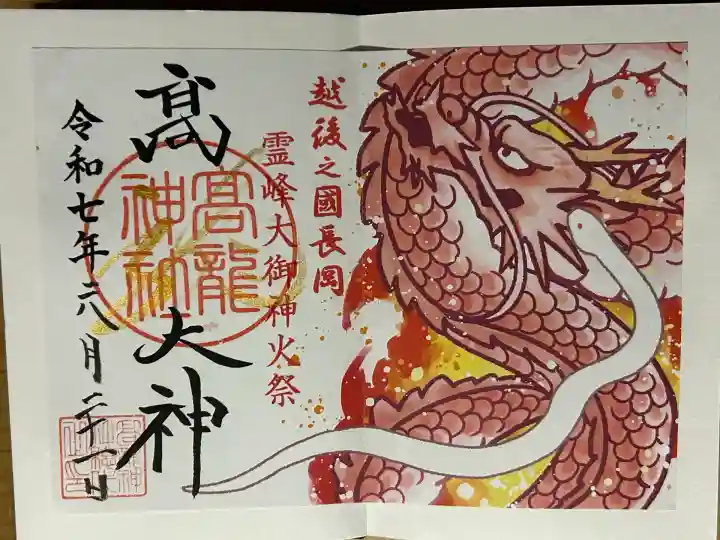 越後之國長岡
霊峰大御神火祭
髙龍大神
高龍
神社
令和七年六月二十一日